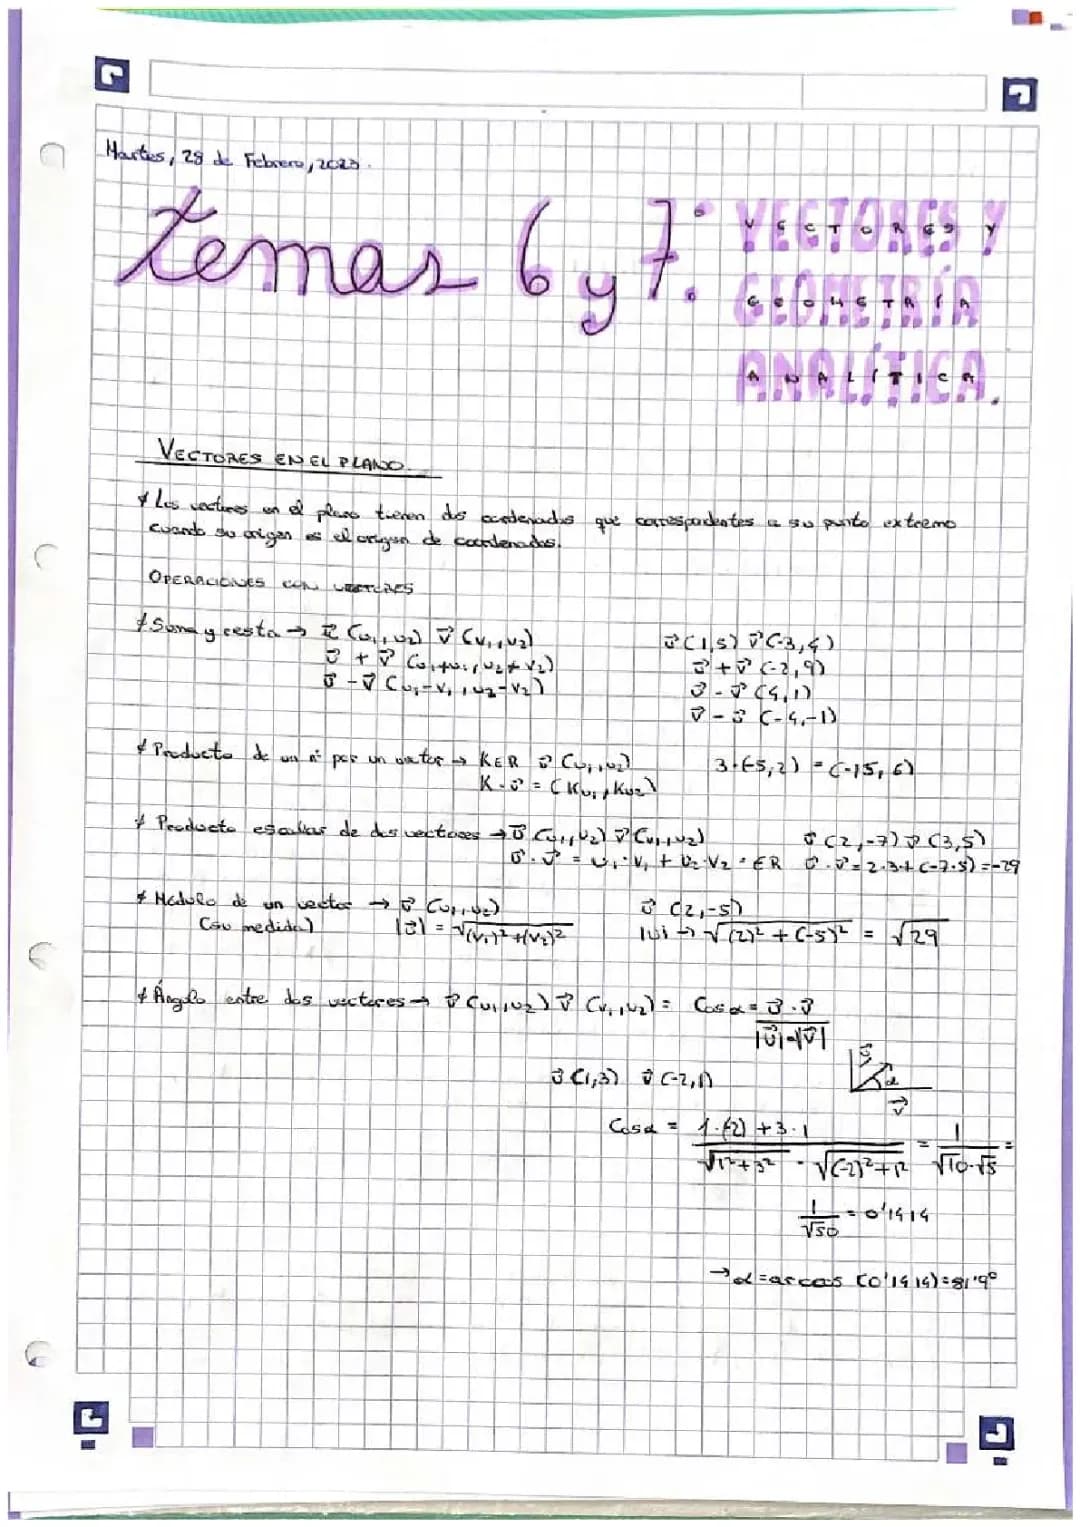 Martes, 28 de Febrero, 2023.
temas 6 y 7: VECTORES Y
GEOMETRÍA
ANALÍTICA.
VECTORES EN EL PLANO.
* Los vectores en el plano tienen dos coordenadas que correspondientes a su punto extremo
cuando su origen es el origen de coordenadas.
OPERACIONES CON VECTORES
* Suma y resta → u⃗ (u₁, u₂) v⃗ (v₁, v₂) u⃗ (1,5) v⃗ (-3,4)
u⃗ + v⃗ (u₁+v₁, u₂+v₂) u⃗ + v⃗ (-2,9)
u⃗ - v⃗ (u₁-v₁, u₂-v₂) u⃗ - v⃗ (4,1)
v⃗ - u⃗ (-4,-1)
* Producto de un nº por un vector → K∈R u⃗ (u₁, u₂) 3·(-5,2) = (-15,6)
K·u⃗ = (Ku₁, Ku₂)
* Producto escalar de dos vectores → u⃗ (u₁, u₂) v⃗ (v₁, v₂) u⃗ (2,-7) v⃗ (3,5)
u⃗·v⃗ = u₁·v₁ + u₂·v₂ · ∈R u⃗·v⃗ = 2·3+(-7·5) = -29
* Módulo de un vector → u⃗ (u₁, u₂) u⃗ (2,-5)
(su medida) |u⃗| = √(v₁)²+(v₂)² |u| → √(2)²+(-5)² = √29
* Ángulo entre dos vectores → u⃗ (u₁, u₂) v⃗ (v₁, v₂) = Cos α = u⃗ · v⃗
|u⃗|·|v⃗|
u⃗ (1,3) v⃗ (-2,1)
u⃗ α
v⃗
Cos α = 1·(-2) + 3·1 = 1 =
√1²+3² · √(-2)²+1² √10·√5
1 = 0'1414
√50
→ α = arcos (0'1414) = 81'9º